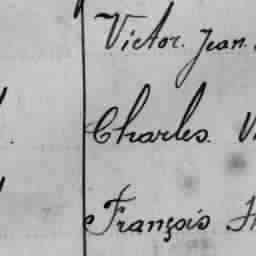 Victor. Jean.
Charles.
François